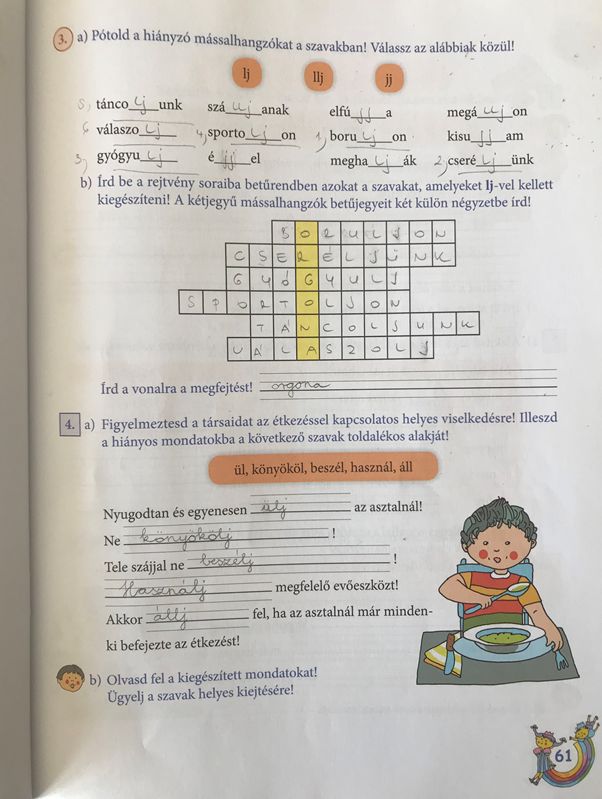 3. a) Pótold a hiányzó mássalhangzókat a szavakban! Válassz az alábbiak közül!
lj llj jj
5, tánco lj unk szá llj anak elfú jj a megá llj on
6, válaszo lj 4, sporto lj on 1, boru lj on kisu jj am
3, gyógyu lj é jj el megha lj ák 2, cseré lj ünk
b) Írd be a rejtvény soraiba betűrendben azokat a szavakat, amelyeket lj-vel kellett
kiegészíteni! A kétjegyű mássalhangzók betűjegyeit két külön négyzetbe írd!
B O R U L J O N
C S E R É L J Ü N K
G Y Ó G Y U L J
S P O R T O L J O N
T Á N C O L J U N K
V Á L A S Z O L J
Írd a vonalra a megfejtést! orgona
4. a) Figyelmeztesd a társaidat az étkezéssel kapcsolatos helyes viselkedésre! Illeszd
a hiányos mondatokba a következő szavak toldalékos alakját!
ül, könyököl, beszél, használ, áll
Nyugodtan és egyenesen ülj az asztalnál!
Ne könyökölj !
Tele szájjal ne beszélj !
Használj megfelelő evőeszközt!
Akkor állj fel, ha az asztalnál már minden-
ki befejezte az étkezést!
b) Olvasd fel a kiegészített mondatokat!
Ügyelj a szavak helyes kiejtésére!
61